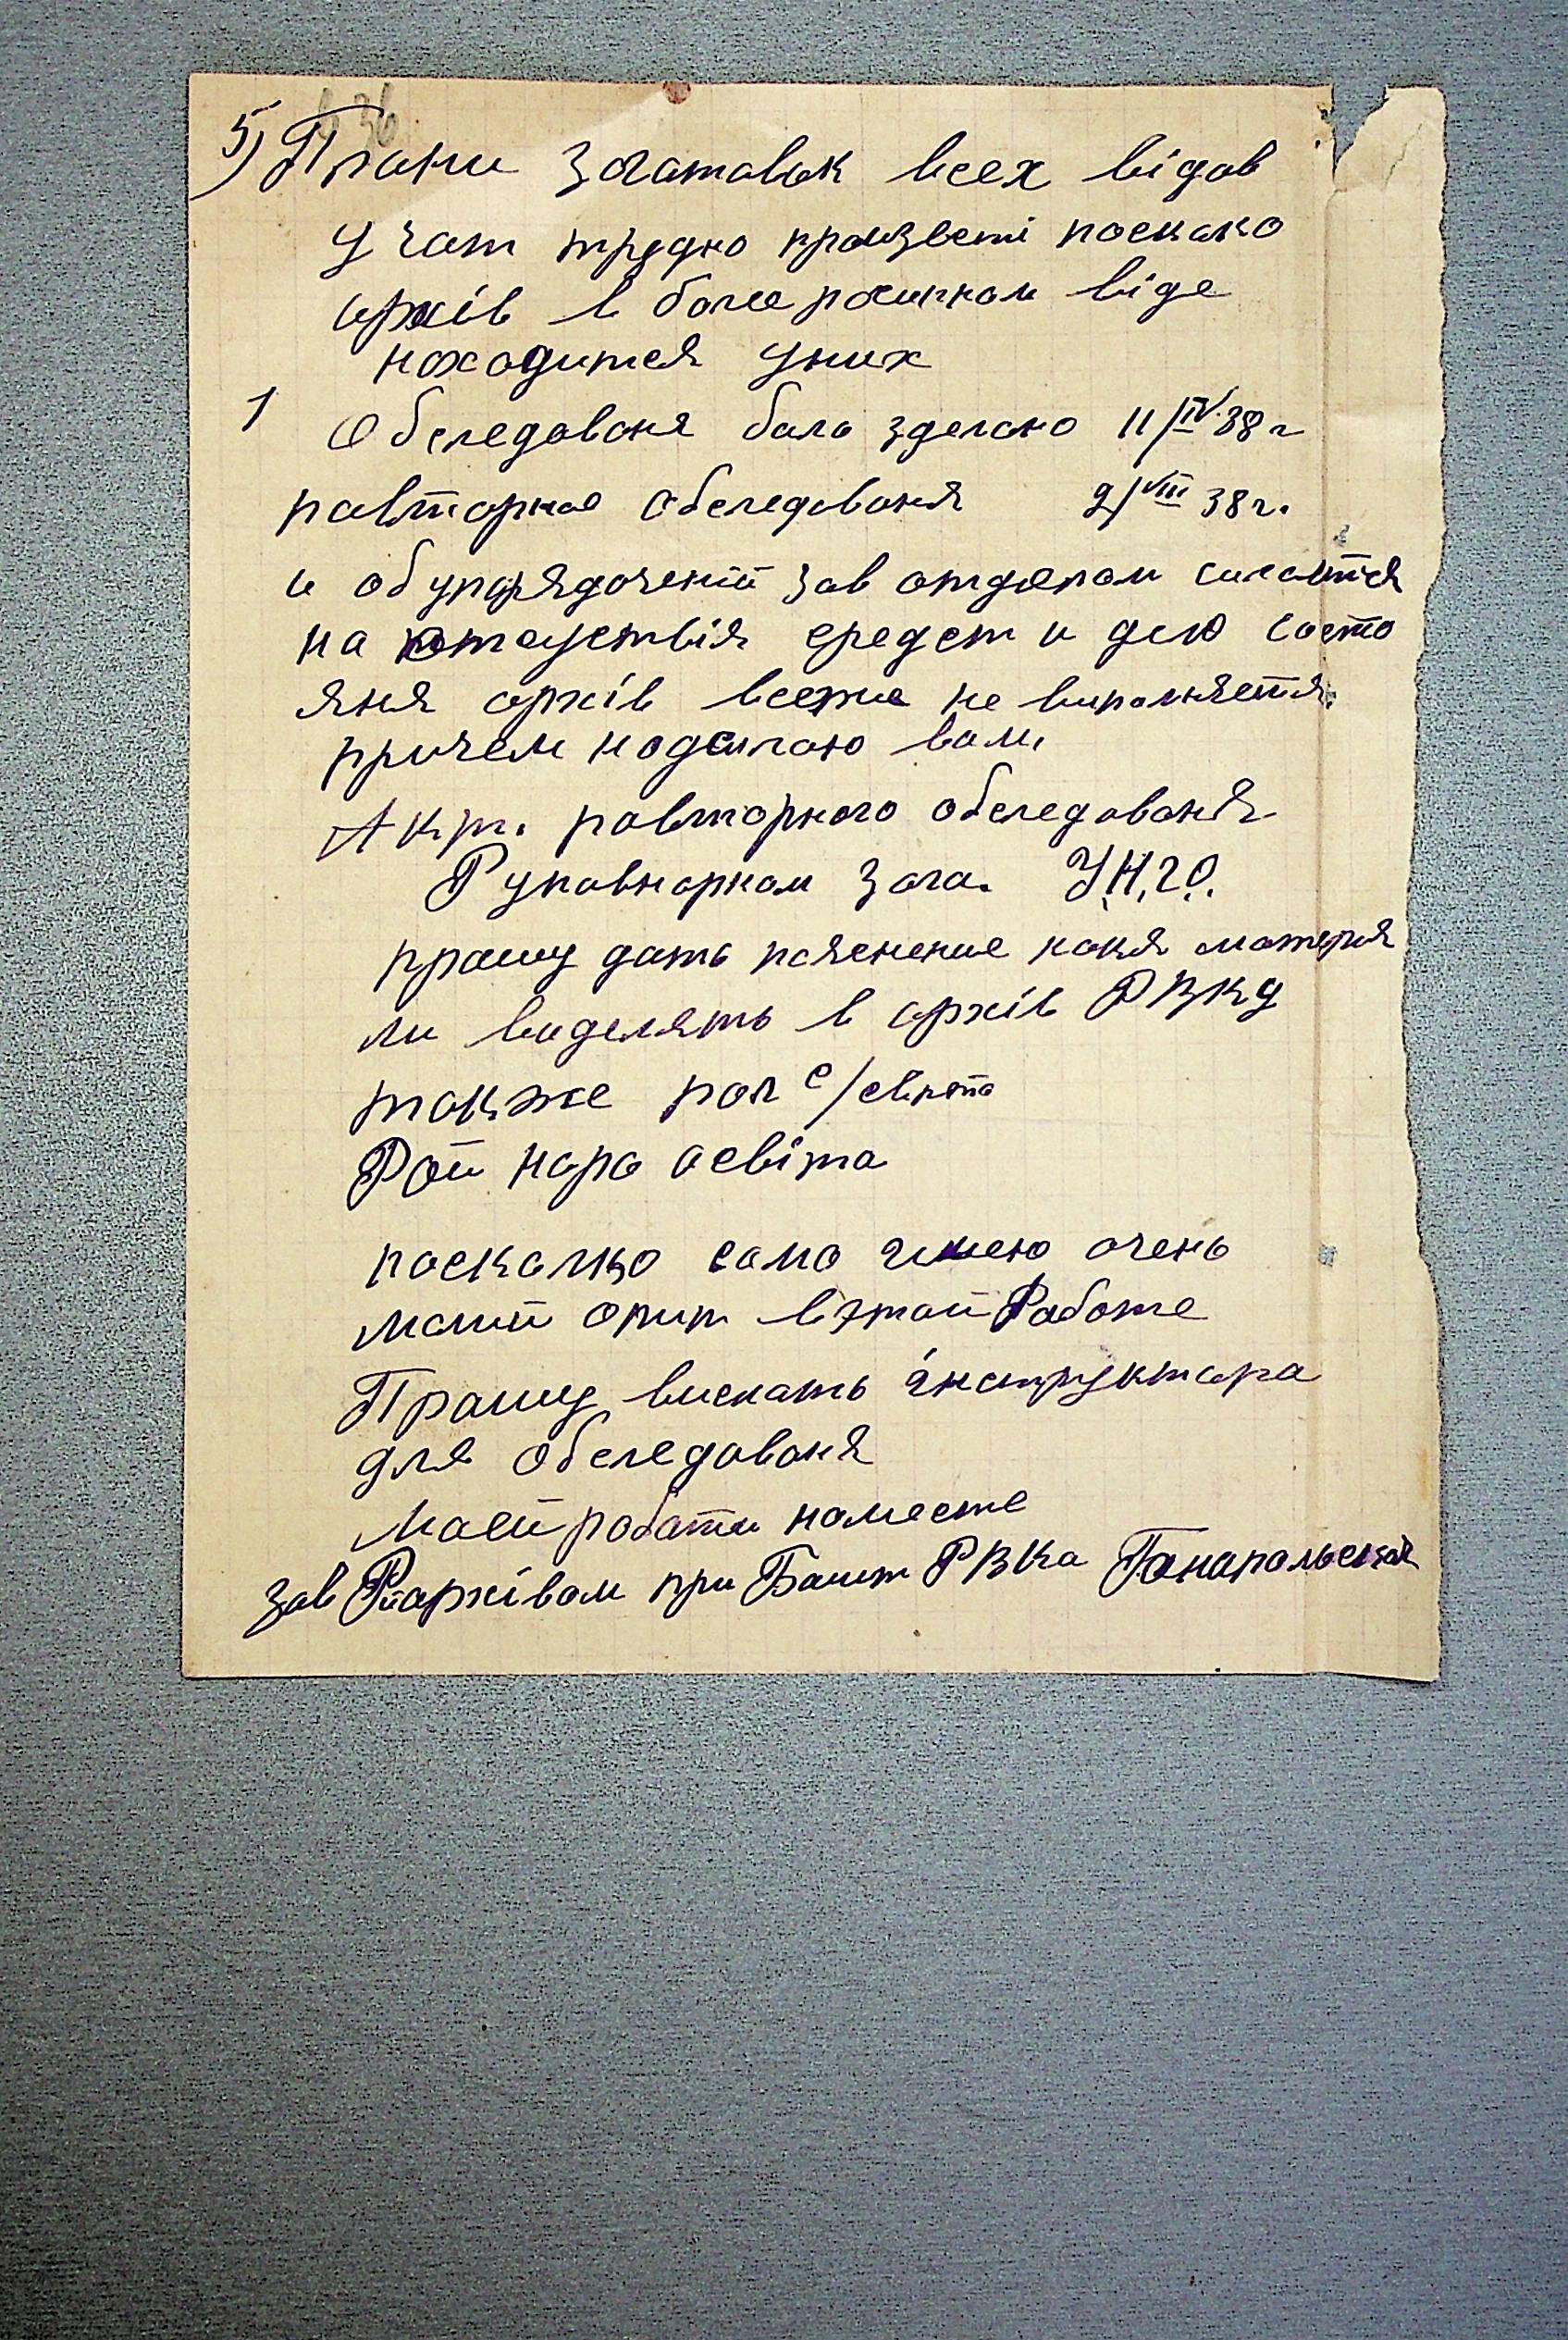 5) Плани Заготовок всех відов
учот трудно произветі поскако
архів в боле росипном віде
находится уних
1 Обследованя било зделано 11/IV.38 г
повторное обследованя 2/VIII 38 г.
и об упорядочений зав отделом силается
на отсуствія средст и дело состо
яня архів всеже не виполняется
причем надсилаю вам
Акт. повторного обследованя
прошу дать пояснение какя матерія
ли виделять в архів РВКу
также рол с/
Рай наро освіта
посколко сама имею очень
малий опит вэтой Работе
Прошу вискать інструктора
для обследованя
моей роботи наместе
зав Райархівом при Башт РВКа Ганапольская